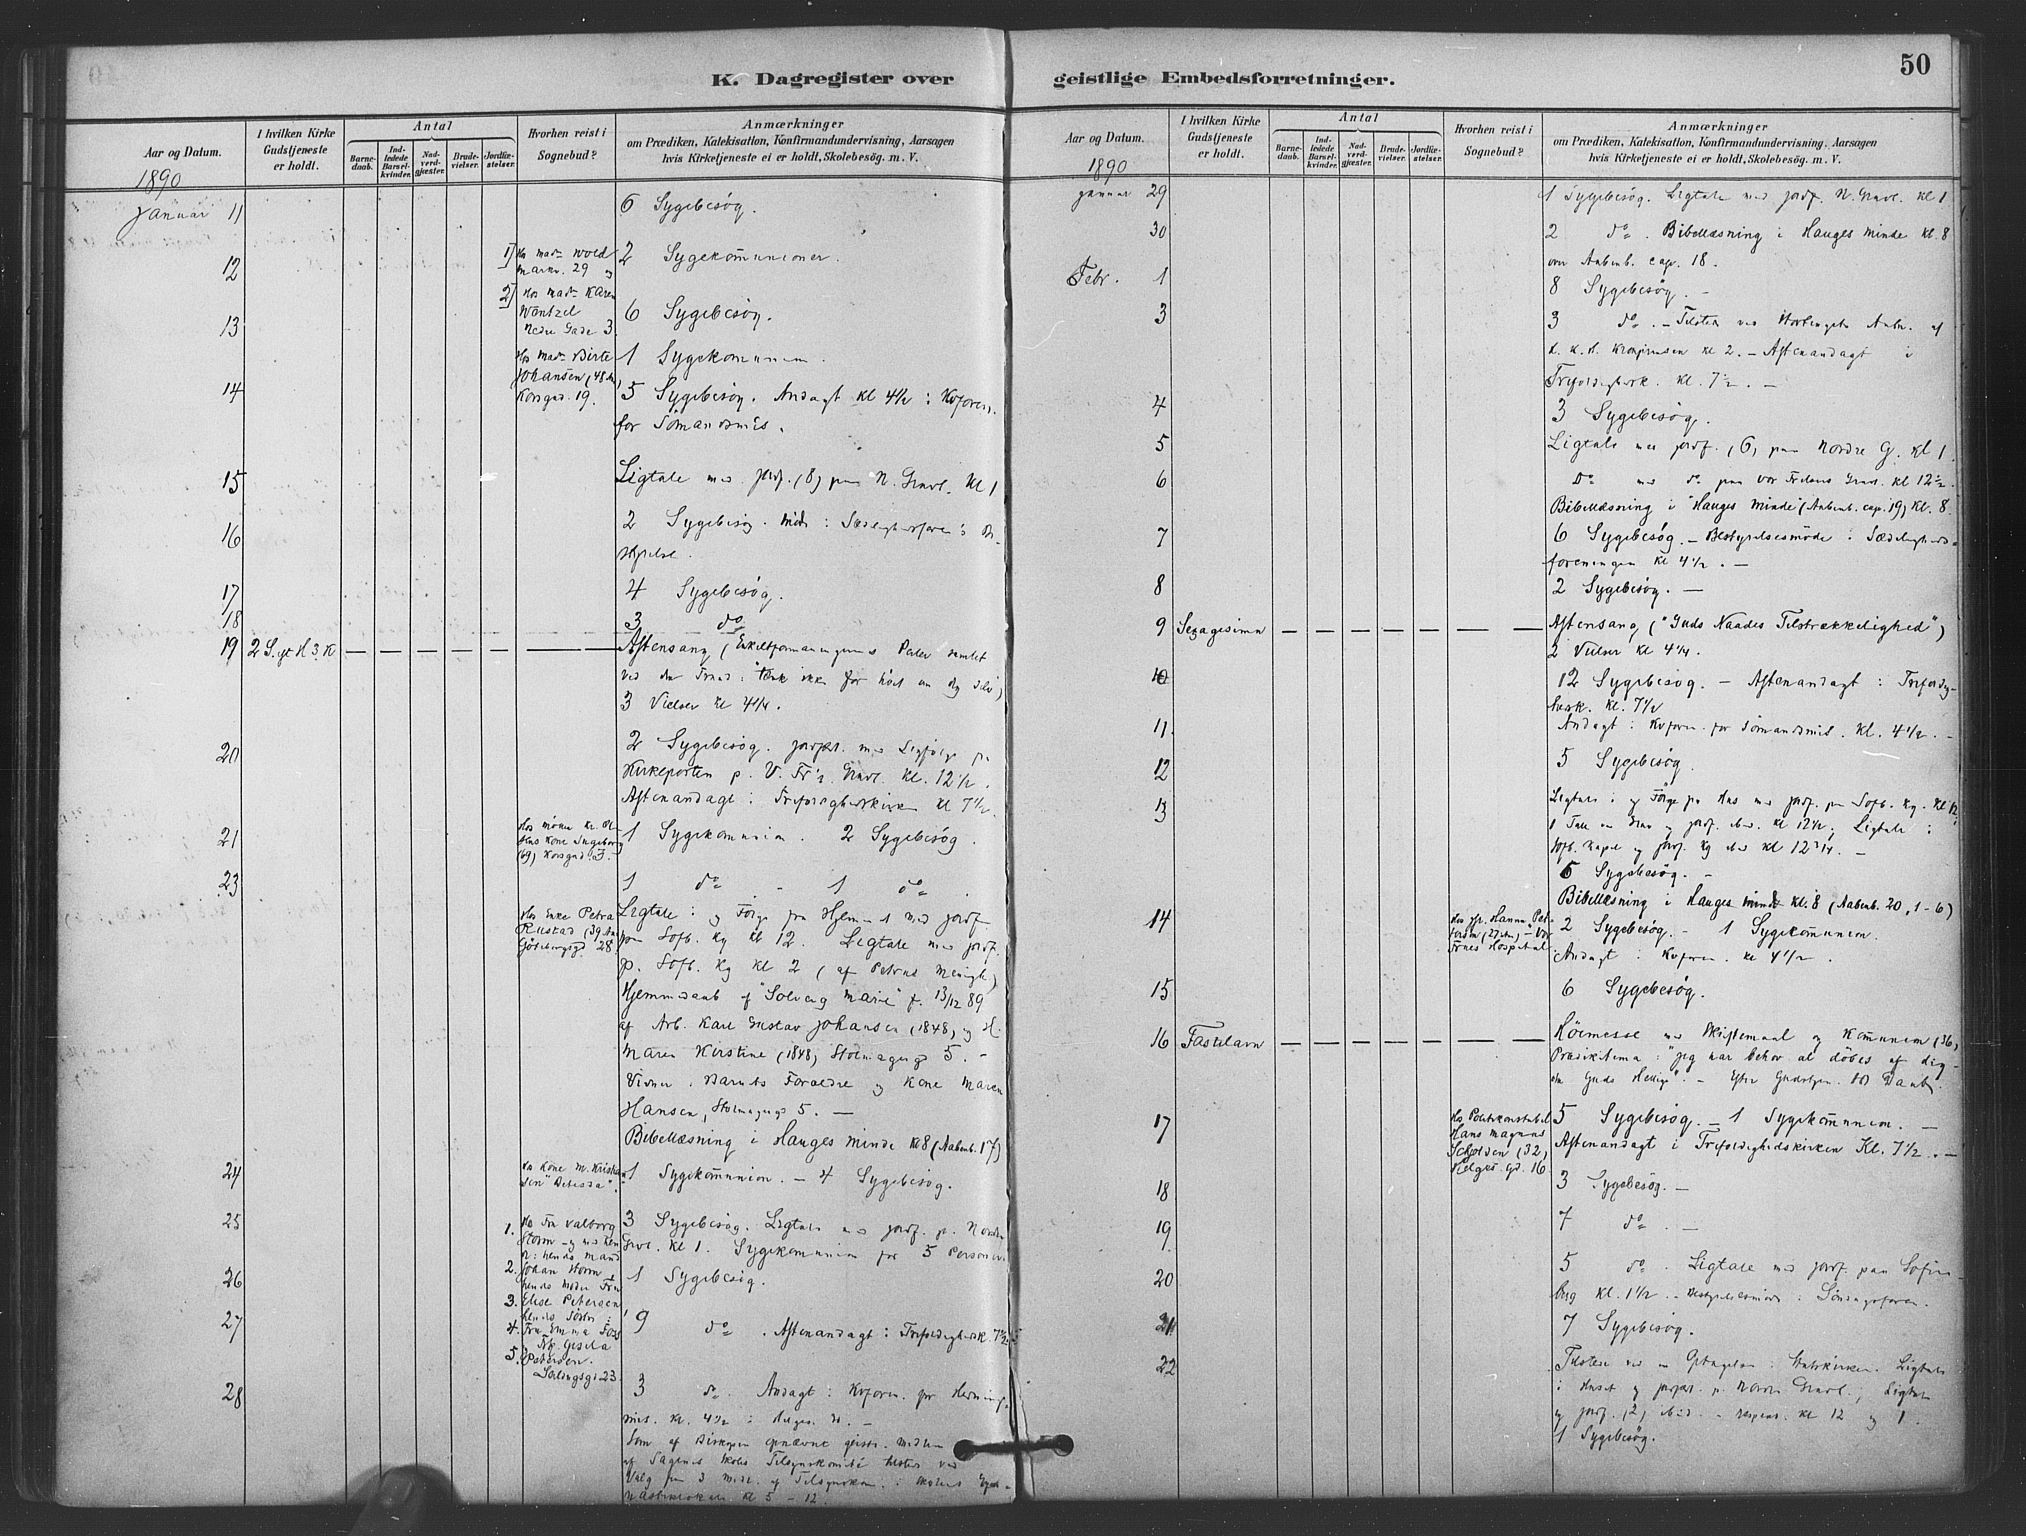 K. Dagregister over geistlige Embedsforretninger.
50
Aar og Datum.
I hvilken Kirke Gudstjeneste er holdt.
Antal
Barnedaab.
Indledede Barselkvinder.
Nadverdgjæster.
Brudevielser.
Jordfæstelser.
Hvorhen reist i Sognebud?
Anmærkninger
om Prædiken, Katekisation, Konfirmandundervisning, Aarsagen
hvis Kirketjeneste ei er holdt, Skolebesög. m. V.
1890
Januar 11
6 Sygebesög.
12
1) Hos mad. Wold
2 Sygekommunioner.
2) Hos Mad. Karen
Wentzel
Nedre Gade 3.
13
6 Sygebesög.
Hos mad. Birte
Johansen (48 Aar)
Korsgad. 19.
1 Sygekommunion.
14
5 Sygebesög. Andagt kl 4½ i Kvforen.
for Sömandsmis.
15
Ligtale med Jordf. (8) paa N. Gravl. Kl 1
16
2 Sygebesög. Möde i Sædelighedsforen's Be-
styrelse.
17
4 Sygebesög.
18
3 do
19
2 S. e. H 3. K
Aftensang (
3 Vielser kl 4¼.
20
2 Sygebesög. Jordfæst. med Ligfölge fra
Kirkeporten p. V. Fr's Gravl. kl. 12½.
Aftenandagt i Trefoldighedskirken kl 7½.
21
Kone Ingeborg
(69) Korsgad.
1 Sygekommunion. 2 Sygebesög.
23
1 do - 1 do.
Hos Enke Petra
Rustad (39 Aar)
Göteborggd. 28.
Ligtale i og Fölge fra Hjemmet med Jordf.
paa Sofb. Kg kl 12. Ligtale med Jordf.
p. Sofb. Kg kl 2 (af Petrus Menigh.)
Hjemmedaab af "Solveig Marie" f. 13/12 89
af Arb. Karl Gustav Johansen (1848) og H.
Maren Kirstine (1848) Stolmagergd 5. -
Vidner: Barnets Forældre og Kone Maren
Hansen, Stolmagergd 5. —
Bibellæsning i Hauges Minde kl 8 (Aabenb. 17)
24
Hos Kone M. Kristian-
sen
1 Sygekommunion. - 4 Sygebesög.
25
1. Hos Fru Valborg
Storm - og med hen-
de: hendes Mand
2. Johan Storm
hendes Moder Fru
3. Elise Petersen
hendes Söstre:
4. Fru Emma Foss
5. Frk. Gisela
Petersen.
3 Sygebesög. Ligtale med Jordf. p. Nordre
Gravl. kl 1. Sygekommunion for 5 Personer.
26
1 Sygebesög.
27
9 do. Aftenandagt i Trefoldighedsk. 7½
28
3 do. Andagt i Kvforen. for Hedning-
mis. kl. 4½ i
Som af Biskopen opnævnt geistl. Medlem
af Sagenes Skoles Tilsynskomité tilstede ved
Valg paa 3 Medl. af Tilsynskom. i Skolens
kl 5 - 12.
Aar og Datum.
I hvilken Kirke Gudstjeneste er holdt.
Antal
Barnedaab.
Indledede Barselkvinder.
Nadverdgjæster.
Brudevielser.
Jordfæstelser.
Hvorhen reist i Sognebud?
Anmærkninger
om Prædiken, Katekisation, Konfirmandundervisning, Aarsagen
hvis Kirketjeneste ei er holdt, Skolebesög. m. V.
1890
Januar 29
1 Sygebesög. Ligtale med Jordf. N. Gravl. kl 1
30
2 do. Bibellæsning i Hauges Minde kl. 8
over Aabenb. cap. 18.
Febr. 1
8 Sygebesög. -
3
3 do. - Tilstede ved Storthingets Aabn. af
H. K. H. Kronprinsen kl 2. - Aftenandagt i
Trefoldighedsk. kl. 7½. -
4
3 Sygebesög.
5
Ligtale med Jordf. (6) paa Nordre G. kl 1.
6
do med do paa Vor Frelsers Gravl. kl 12½.
Bibellæsning i "Hauges Minde" (Aabenb. cap. 19) kl. 8.
7
6 Sygebesög. - Bestyrelsesmöde i Sædeligheds-
foreningen kl 4½. -
8
2 Sygebesög. -
9 Sexagesima
Aftensang ("Guds Naades Tilstrækkelighed")
2 Vielser kl 4¼.
10
12 Sygebesög. - Aftenandagt i Trefoldig-
hedsk. kl. 7½
11.
Andagt i Kvforen. for Sömandsmis. kl. 4½. -
12
5 Sygebesög.
13
Ligtale i og Fölge fra Hus med Jordf. paa Sofb. Kg. kl 12,
1 Tale ved Grav og Jordf. ibid. kl 12½; Ligtale i
Sofb. Kapel og Jordf. Kg ibid kl 12¾. -
6 Sygebesög. -
Bibellæsning i Hauges Minde kl. 8 (Aabenb. 20, 1-6)
14
Hos Hanna Pet-
ersen (27 Aar) - Vor
Frues Hospital.
2 Sygebesög. - 1 Sygekommunion.
Andagt i Kvforen. kl 4½.
15
6 Sygebesög.
16 Fastelavn
Höimesse med Skriftemaal og Kommunion (36)
Prædiktema: "Jeg har behov at döbes af dig
du Guds Hellige". - Efter Gudstjen. 10 Daab.
17
Hos Politikonstabel
Hans Magnus
(32)
Helges. Gd. 16
5 Sygebesög. - 1 Sygekommunion. -
Aftenandagt i Trefoldighedskirken Kl. 7½. -
18
3 Sygebesög. -
19
7 do. -
20
5 do. Ligtale med Jordf. paa Sofien-
berg kl. 1½. - Bestyrelsesmöde i Söndagsforen.
21
7 Sygebesög.
22
Tilstede ved en Optagelse i Statskirken. Ligtale
i Huset og Jordfæst. p. Nordre Gravl.; Ligtale
og Jordf. (2) ibid. - respect. kl 12 og 1.
4 Sygebesög.